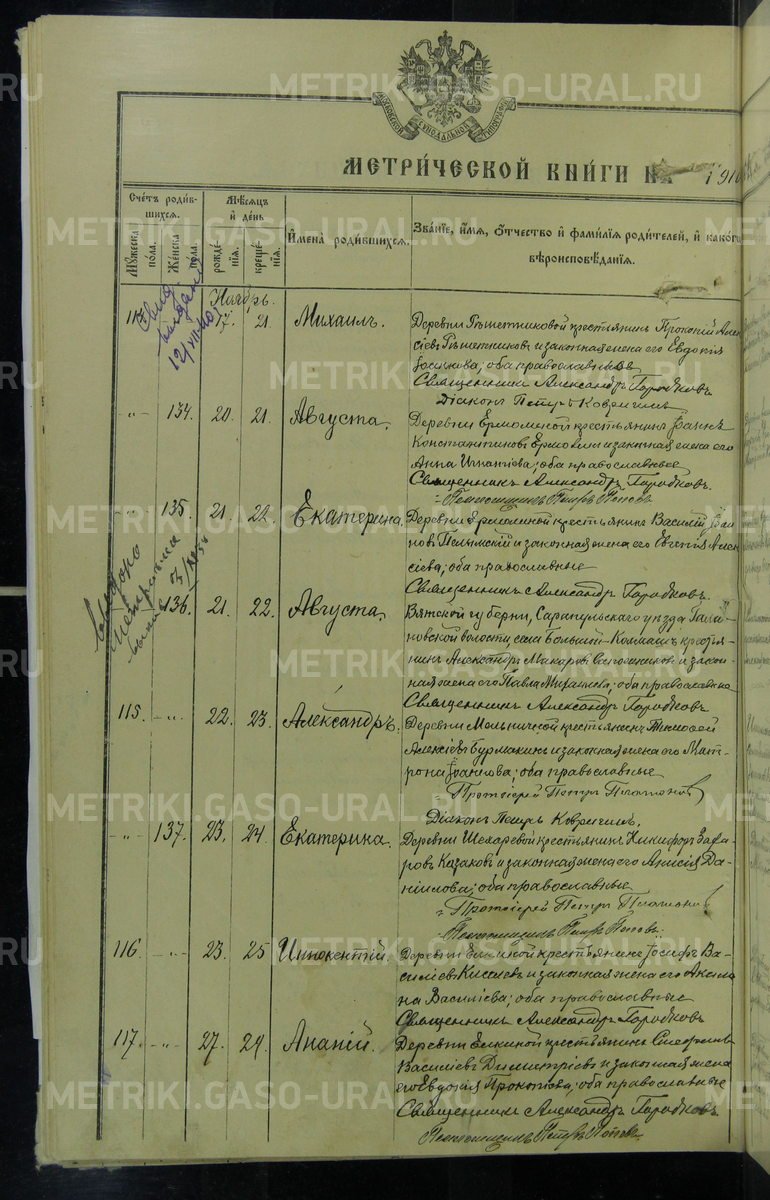 METRIKI.GASO-URAL.RU
МОСКОВСКОЙ СѴНОДАЛЬНОЙ ТИПОГРАФІИ
МЕТРИ́ЧЕСКОЙ КНИ́ГИ НА 1910
Сче́тъ роди́в-
шихся.
Мꙋ́жеска
пола.
Же́нска
пола.
Мѣ́сяцъ
и҆ де́нь
рожде́-
нїѧ.
креще́-
нїѧ.
И҆мена̀ роди́вшихся.
Зва́нїе, и҆́мѧ, ѻ҆́тчество и҆ фами́лїѧ роди́телей, и҆ како́гѡ
вѣроисповѣ́данїѧ.
Ноябрь.
21.
Михаилъ.
Деревни Рѣшетниковой крестьянинъ Прокопій Алек
сіевъ Рѣшетниковъ и законная жена его Евдокія
оба православные
Священникъ Александръ Городковъ
Діаконъ Петръ
134.
20.
21.
Августа.
Деревни Ермолиной крестьянинъ Іоаннъ
Константиновъ Ермолинъ и законная жена его
Анна Игнатіева; оба православные
Священникъ Александръ Городковъ.
Псаломщикъ Петръ Поповъ
135.
21.
22.
Екатерина.
Деревни Ермолиной крестьянинъ Василій Іоан
новъ Пелымскій и законная жена его Евгенія Алек
сіева; оба православные
Священникъ Александръ Городковъ.
136.
21.
22.
Августа.
Вятской губерніи, Сарапульскаго уѣзда
новской волости, села Большой-Калмашъ крестья
нинъ Александръ Макаровъ и закон
ная жена его Павла оба православные
Священникъ Александръ Городковъ
115.
22.
23.
Александръ.
Деревни Мельничной крестьянинъ Тимофей
Алексіевъ Бурмакинъ и законная жена его Мат-
рона Іоаннова; оба православные
Протоіерей Петръ Платоновъ
Діаконъ Петръ
137.
23.
24.
Екатерина.
Деревни Шехаревой крестьянинъ Никифоръ Заха
ровъ Казаковъ и законная жена его Анисія Да-
ніилова; оба православные
Протоіерей Петръ Платоновъ
Псаломщикъ Петръ Поповъ.
116
23.
25
Иннокентій.
Деревни Елкиной крестьянинъ Іосифъ Ва-
силіевъ Киселевъ и законная жена его Акили
на Василіева; оба православные
Священникъ Александръ Городковъ
117.
27.
29.
Ананій.
Деревни Елкиной крестьянинъ Стефанъ
Василіевъ Димитріевъ и законная жена
его Евдокія Прокопіева; оба православные
Священникъ Александръ Городковъ.
Псаломщикъ Петръ Поповъ.